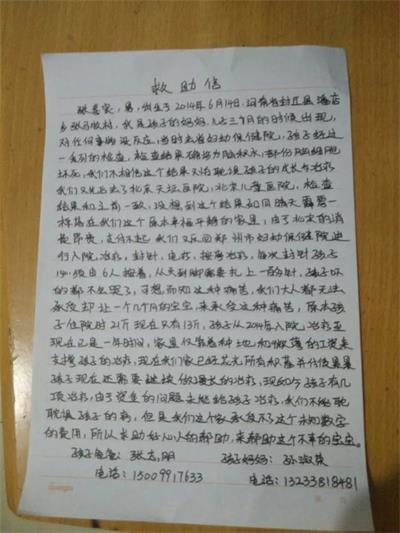 救助信
张喜宸，男，出生于2014年6月14日，河南省封丘县潘店
乡张马牧村，我是孩子的妈妈，儿子三个月的时候出现，
对任何事物没反应，当时去省妇幼保健院，孩子经过
一系列的检查，检查结果确诊为脑积水，部份脑细胞
坏死，我们不相信这个结果又怕耽误孩子的成长与治疗
我们又先后去了北京天坛医院，北京儿童医院，检查
结果和之前一致，没想到这个结果如同晴天霹雳一
样落在我们这个原本幸福平静的家里，由于北京的消
费昂贵，支付不起，我们又返回郑州市妇幼保健院进
行入院治疗，封针，电疗，按摩治疗，每次封针孩子
都须由6人按着，从头到脚需要扎上一百多针，孩子从
的都不会哭了，可想而知这种痛苦，我们大人都无法
承受却让一个几个月的宝宝，来承受这种痛苦，原本孩
子住院时21斤现在只有13斤，孩子从2014年入院治疗至
现在已是一年时间，家里仅靠着种地和微薄的工资来
支撑孩子的治疗，现在我们家已经花光所有积蓄并负债累累
孩子现在还需要继续做漫长的治疗，现如今孩子有几
项治疗，由于资金的问题未能给孩子治疗，我们不能耽
耽误孩子的病，但是我们这个家承受不了这个未知数字
的费用，所以求助好心人的帮助，来帮助这个不幸的宝宝。
孩子爸爸：张志明 孩子妈妈：孙淑荣
电话：15009917633 电话：13233818481